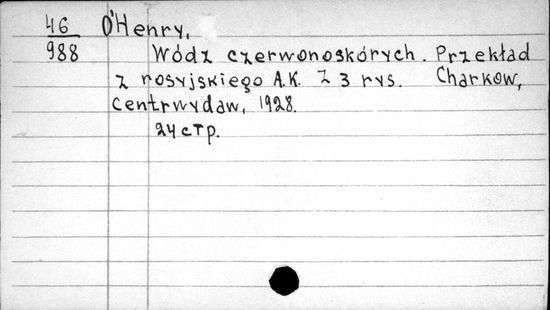 46 O'Henry,
988 Wódz czerwonoskórych. Przekład
z rosyjskiego A.K. Z 3 rys. Charkow,
Centrwydaw, 1928.
24 стр.